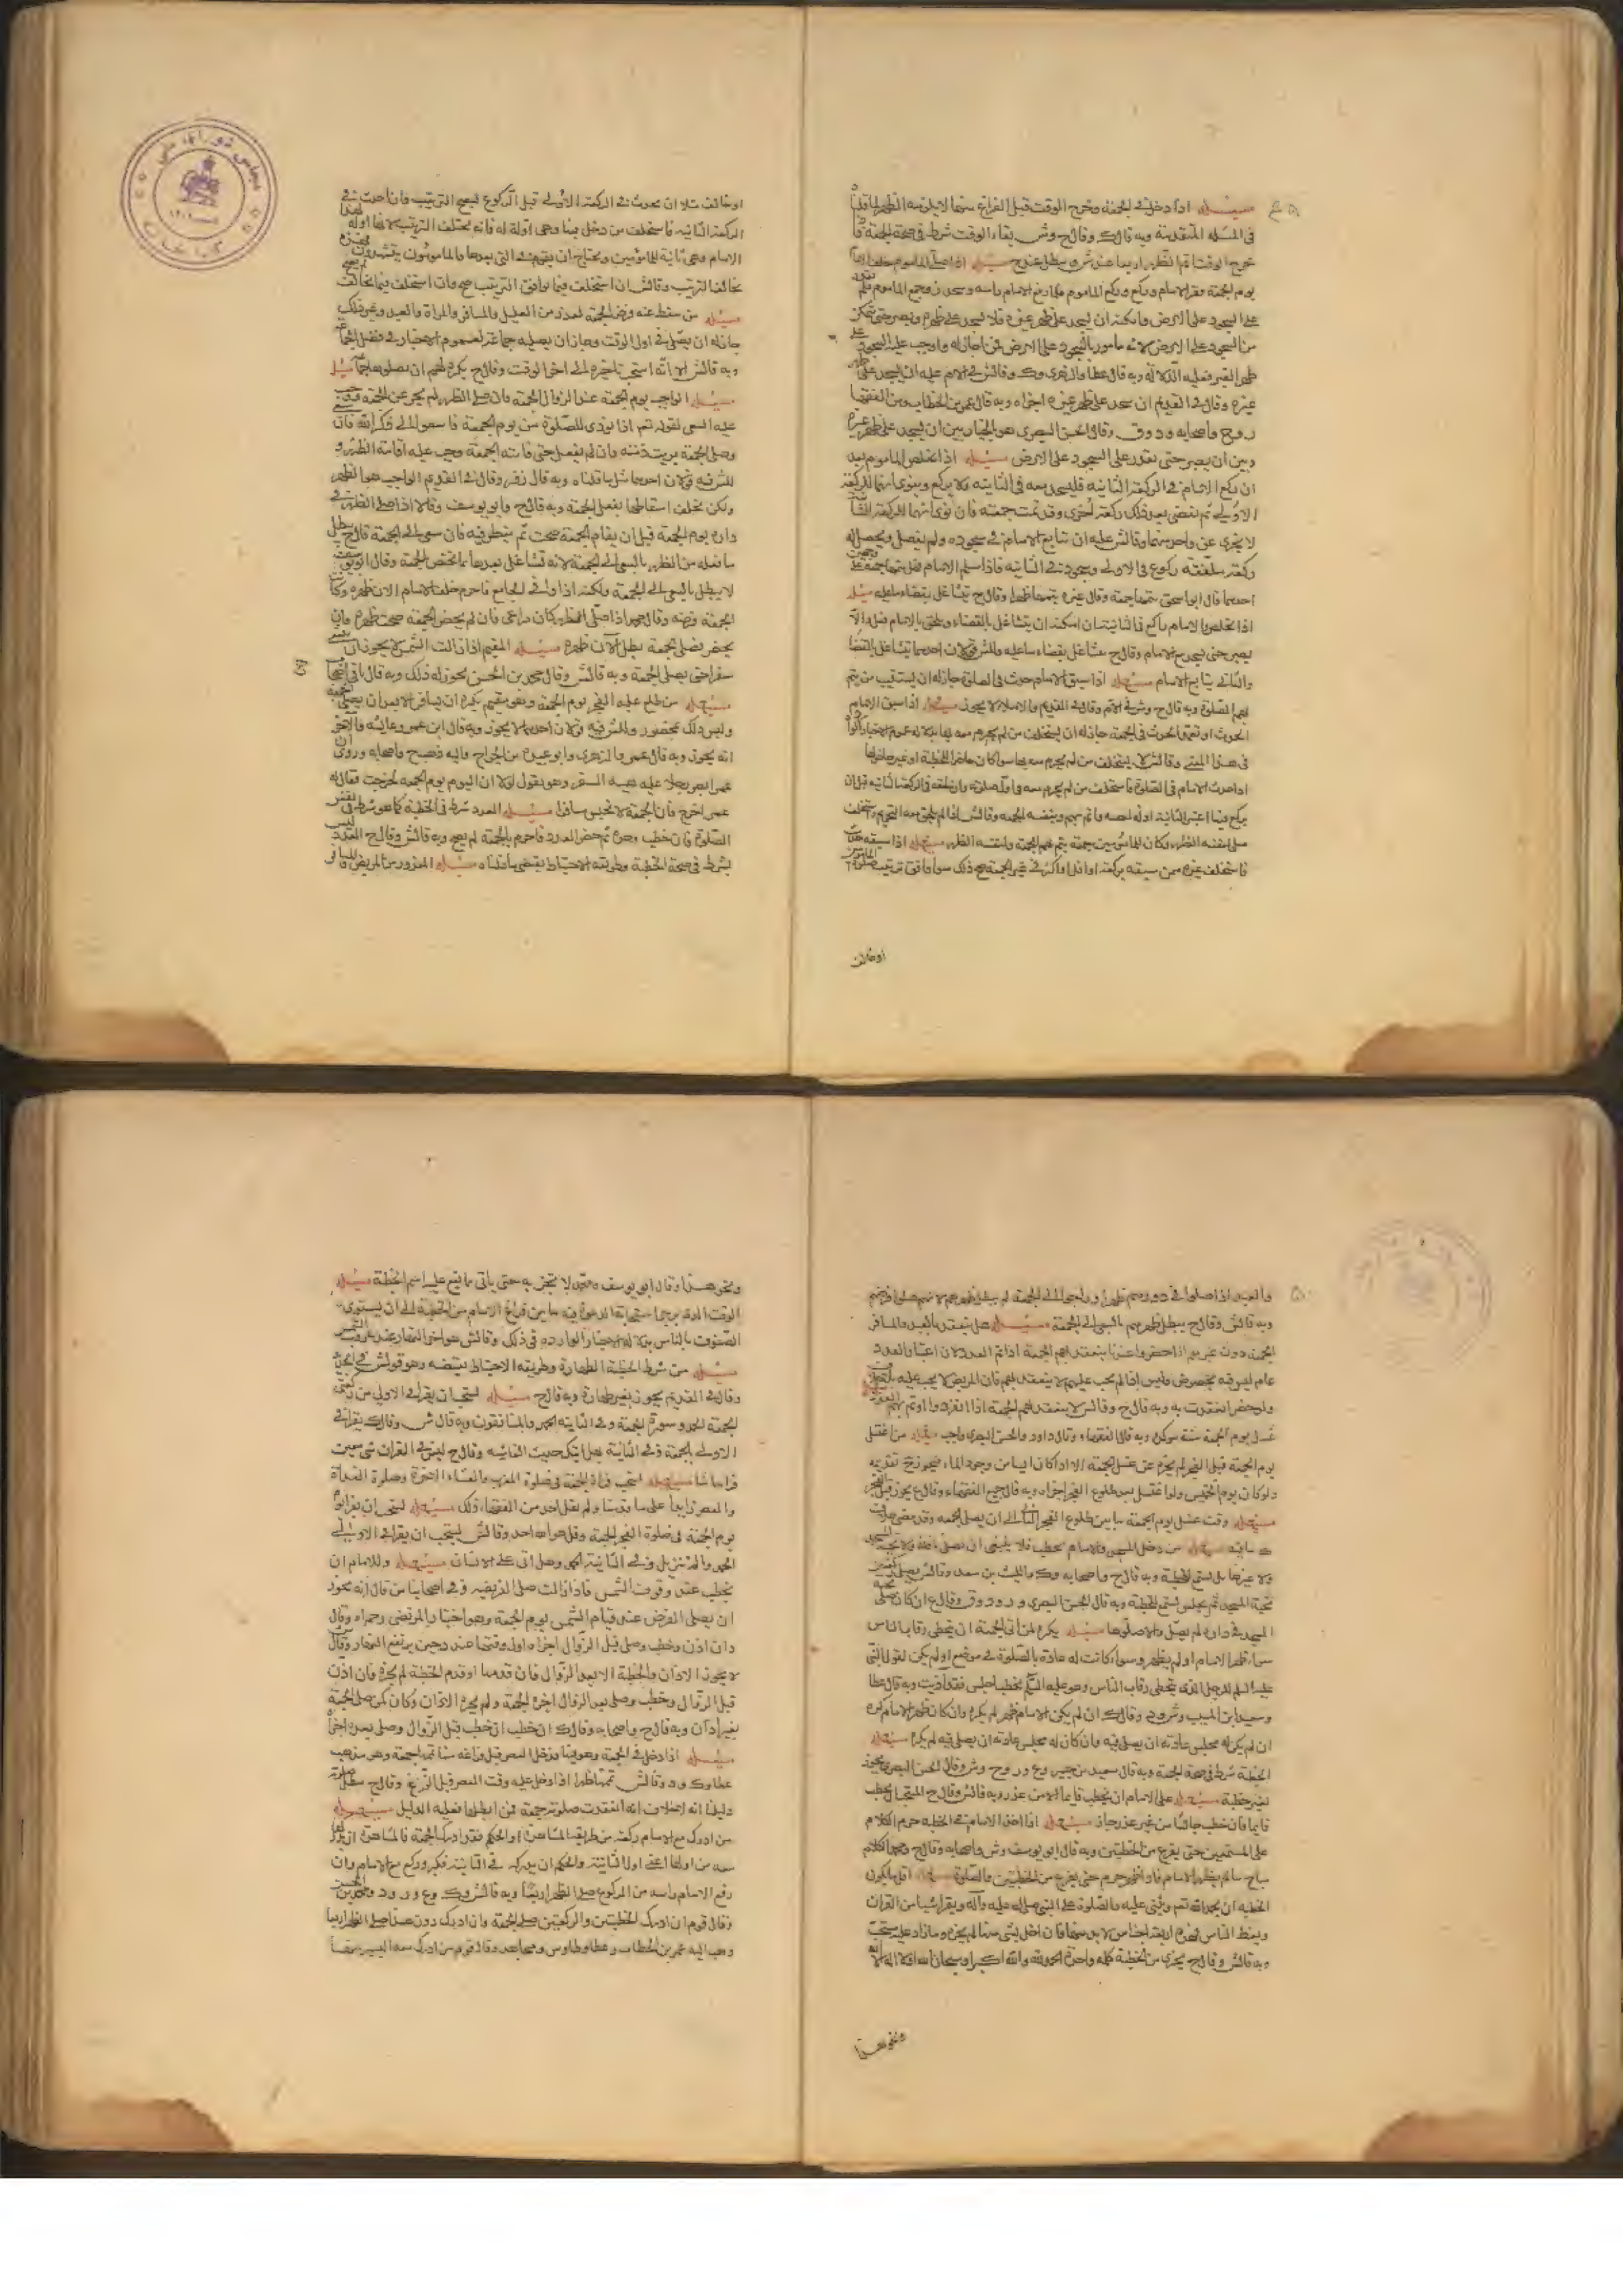 مسئله اذا دخل في الجمعة وخرج الوقت قبل الفراغ منها لا يلزمه الظهر لما قلنا
في المسئلة المتقدمة وبه قال ك وقال ح وش بقاء الوقت شرط في صحة الجمعة
خرج الوقت اتم الظهر اربعا عند ش ويبطل عند ح مسئله اذا صلى الماموم خلف
يوم الجمعة فقرأ الامام وركع وركع الماموم فلما رفع الامام راسه وسجد زوحم الماموم فلم
على السجود على الارض وامكنه ان يسجد على ظهر غيره فلا يسجد على ظهره ويصبر حتى يتمكن
من السجود على الارض لانه مامور بالسجود على الارض فمن اجاز له واوجب عليه السجود
ظهر الغير فعليه الدلالة وبه قال عطا والزهري وك وقال ش في الام عليه ان يسجد على
غيره وقال في القديم ان سجد على ظهر غيره اجزاه وبه قال عمر بن الخطاب ومن الفقها
وقال الحسن البصري هو بالخيار بين ان يسجد على ظهر غيره
وبين ان يصبر حتى يقدر على السجود على الارض مسئله اذا تخلص الماموم بعد
ان ركع الامام في الركعة الثانية فليسجد معه في الثانية ولا يركع وينوي انهما للركعة
الاولى ثم يقضي بعد ذلك ركعة اخرى وقد تمت جمعته فان نوى انهما للركعة
لا يجزي عن واحد منهما وقال ش عليه ان يتابع الامام في سجوده ولم يفصل ويحصل له
ركعة ملفقة ركوع في الاولى وسجود في الثانية فاذا سلم الامام
احدهما قال ابو اسحق يتمها جمعة وقال غيره يتمها ظهرا وقال ح يتشاغل بقضاء ما عليه مسئله
اذا تخلص والامام راكع في الثانية فان امكنه ان يتشاغل بالقضاء ويلحق بالامام فعل والا
يصبر حتى يسجد مع الامام وقال ح يتشاغل بقضاء ما عليه وللش قولان احدهما يتشاغل بالقضا
والثاني يتابع الامام مسئله اذا سبق الامام حدث في الصلوة جاز له ان يستنيب من يتم
بهم الصلوة وبه قال ح وش في الام وقال في القديم والاملاء لا يجوز مسئله اذا سبق الامام
الحدث او تعمد الحدث في الجمعة جاز له ان يستخلف من لم يحرم معه
في هذا المعنى وقال ش لا يستخلف من لم يحرم معه بها سوا كان حاضر الخطبة او غير حاضرها
احدث الامام في الصلوة فاستخلف من لم يحرم معه في اول صلوته وان خلفه في الركعة الثانية قبل ان
يركع فيها
صلى لنفسه الظهر وكان للمامومين جمعة يتم لهم الجمعة ولنفسه الظهر مسئله اذا سبقه
فاستخلف غيره ممن سبقه بركعة او اقل او اكثر في غير الجمعة صح ذلك سوا وافق ترتيب
او خالف
او خالف مثلا ان يحدث في الركعة الاولى قبل الركوع ليصح الترتيب فان احدث في
الركعة الثانية فاستخلف من دخل معه وهي اولة له فانه يختلف الترتيب لانها اولة
الامام وهي ثانية للمامومين ويحتاج ان يقوم الى التي بعدها والمامومون يتشهدون
يخالف الترتيب وقال ش ان استخلف فيما يوافق الترتيب صح وان استخلف فيما يخالف
مسئله من سقط عنه فرض الجمعة لعذر من العليل والمسافر والمراة والعبد وغير ذلك
جاز له ان يصلي في اول الوقت وجاز ان يصليه جماعة لعموم الاخبار في فضل
وبه قال ش الا انه استحب تاخيره الى اخر الوقت وقال ح يكره لهم ان يصلوها
مسئله الواجب يوم الجمعة عند الزوال الجمعة فان صلى الظهر لم يجز عن الجمعة
عليه السعي لقوله تعم اذا نودي للصلوة من يوم الجمعة فاسعوا الى ذكر الله فان
وصلى الجمعة برئت ذمته وان لم يفعل حتى فاتته الجمعة وجب عليه اقامة الظهر و
للش فيه قولان احدهما مثل ما قلناه وبه قال زفر وقال في القديم الواجب هو الظهر
ولكن يكلف اسقاطها بفعل الجمعة وبه قال ح وابو يوسف وقالا اذا صلى الظهر في
داره يوم الجمعة قبل ان يقام الجمعة صحت ثم ينظر فيه فان سعى الى الجمعة قال ح بطل
ما فعله من الظهر بالسعي الى الجمعة لانه تشاغل بعدها بما يختص بالجمعة وقال ابو يوسف
لا يبطل بالسعي الى الجمعة ولكنه اذا وافى الجامع فاحرم خلف الامام الان ظهره
الجمعة فرضه وقال محمد اذا صلى الظهر كان مراعى فان لم يحضر الجمعة صحت ظهره وان
يحضر فصلى الجمعة بطل الان ظهره مسئله المقيم اذا زالت الشمس لا يجوز ان
سفرا حتى يصلي الجمعة وبه قال ش وقال محمد بن الحسن يجوز له ذلك وبه قال باقي
مسئله من طلع عليه الفجر يوم الجمعة وهو مقيم يكره ان يسافر الا بعد ان يصلي
وليس ذلك بمحظور وللش فيه قولان احدهما لا يجوز وبه قال ابن عمر وعائشه والاخر
انه يجوز وبه قال عمر والزهري وابو عبيدة بن الجراح وفي الفقها ح واصحابه وروي
عمر ابصر رجلا عليه هيئة السفر وهو يقول لولا ان اليوم يوم الجمعة لخرجت فقال له
عمر اخرج فان الجمعة لا تحبس مسافرا مسئله العدد شرط في الخطبة كما هو شرط في
الصلوة فان خطب وحده ثم حضر العدد فاحرم بالجمعة لم يصح وبه قال ش وقال ح العدد
بشرط في صحة الخطبة وطريقة الاحتياط يقتضي ما قلناه مسئله المعذور من المريض والمسافر
والعبد اذا صلوا في دورهم ظهرا وراحوا الى الجمعة لم يبطل ظهرهم لانهم صلوا فرضهم
وبه قال ش وقال ح يبطل ظهرهم بالسعي الى الجمعة مسئله هل تنعقد بالعبد والمسافر
الجمعة دون غيرهم اذا حضروا عندنا ينعقد بهم الجمعة اذا تم العدد لان اعتبار العدد
عام ليس فيه تخصيص وليس اذا لم يجب عليهم لا ينعقد بهم فان المريض لا يجب عليه
ولو حضر انعقدت به وبه قال ح وقال ش لا ينعقد بهم الجمعة اذا انفردوا او تم بهم العدد
غسل يوم الجمعة سنة موكدة وبه قال الفقهاء وقال داود والحسن البصري واجب مسئله من اغتسل
يوم الجمعة قبل الفجر لم يجزه عن غسل الجمعة الا اذا كان ايسا من وجود الماء فيجوز تقديمه
ولو كان يوم الخميس ولو اغتسل بعد طلوع الفجر اجزاه وبه قال جميع الفقهاء وقال ع يجوز قبل الفجر
مسئله وقت غسل يوم الجمعة ما بين طلوع الفجر الثاني الى ان يصلي الجمعة
مسئله من دخل المسجد والامام يخطب فلا ينبغي ان يصلي نافلة ولا تحية
ولا غيرها بل يستمع للخطبة وبه قال ح واصحابه وك والليث بن سعد وقال ش يصلي
تحية المسجد ثم يجلس ليستمع للخطبة وبه قال الحسن البصري وقال ع ان كان صلى
المسجد في داره لم يصل والا صلوها مسئله يكره لمن اتى الجمعة ان يتخطى رقاب الناس
سواء ظهر الامام او لم يظهر وسواء كانت له عادة بالصلوة في موضع او لم يكن لقول النبي
عليه السلم للرجل الذي يتخطى رقاب الناس وهو عليه السلم يخطب اجلس فقد اذيت وبه قال عطا
وسعيد ابن المسيب وش وقال ك ان لم يكن الامام ظهر لم يكره وان كان ظهر الامام كره
ان لم يكن له مجلس عادته ان يصلي فيه وان كان له مجلس عادته ان يصلي فيه لم يكره مسئله
الخطبة شرط في صحة الجمعة وبه قال سعيد بن جبير وع وش وقال الحسن البصري يجوز
بغير خطبة مسئله على الامام ان يخطب قايما الا من عذر وبه قال ش وقال ح المستحب ان يخطب
قايما فان خطب جالسا من غير عذر جاز مسئله اذا اخذ الامام في الخطبة حرم الكلام
على المستمعين حتى يفرغ من الخطبتين وبه قال ابو يوسف وش واصحابه وقال ح ومحمد الكلام
مباح ما لم يظهر الامام فاذا ظهر حرم حتى يفرغ من الخطبتين والصلوة مسئله اقل ما يكون
الخطبة ان يحمد الله تعم ويثني عليه والصلوة على النبي صلى الله عليه واله ويقرا شيئا من القران
ويعظ الناس فهذه اربعة اجناس لا بد منها فان اخل بشي منها لم يجزه وما زاد عليه مستحب
وبه قال ش وقال ح يجزي من الخطبة كلمة واحدة الحمد لله او الله اكبر او سبحان الله او لا اله الا
ونحو هذا
ونحو هذا وقال ابو يوسف ومحمد لا يجزيه حتى ياتي بما يقع عليه اسم الخطبة مسئله
الوقت الذي يرجى استجابة الدعوة فيه ما بين فراغ الامام من الخطبة الى ان يستوي
الصفوف بالناس بدلالة الاخبار الوارده في ذلك وقال ش هو اخر النهار عند غروب الشمس
مسئله من شرط الخطبة الطهارة وطريقة الاحتياط يقتضيه وهو قول ش في الجديد
وقال في القديم يجوز بغير طهارة وبه قال ح مسئله يستحب ان يقرا في الاولى من
الجمعة الحمد وسورة الجمعة وفي الثانية الحمد والمنافقون وبه قال ش وقال ك يقرا في
الاولى الجمعة وفي الثانية هل اتيك حديث الغاشية وقال ح ليس في القران شي معين
قرا ما شا مسئله يستحب قراءة الجمعة في صلوة المغرب والعشاء الاخرة وصلوة الغداة
والعصر زايدا على ما قدمناه ولم يقل احد من الفقهاء ذلك مسئله يستحب ان يقرا
يوم الجمعة في صلوة الفجر الجمعة وقل هو الله احد وقال ش يستحب ان يقرا في الاولى
الحمد والم تنزيل وفي الثانية الحمد وهل اتى على الانسان مسئله وللامام ان
يخطب عند وقوف الشمس فاذا زالت صلى الفريضة وفي اصحابنا من قال انه يجوز
ان يصلي الفرض عند قيام الشمس يوم الجمعة وهو اختيار المرتضى رحمه الله وقال
د ان اذن وخطب وصلى قبل الزوال اجزاه واول وقتها عنده حين يرتفع النهار وقال
لا يجوز الاذان والخطبة الا بعد الزوال فان قدمها او قدم الخطبة لم يجزه فان اذن
قبل الزوال وخطب وصلى بعد الزوال اجزته الجمعة ولم يجزه الاذان وكان كمن صلى الجمعة
بغير اذان وبه قال ح واصحابه وقال ك ان خطب قبل الزوال وصلى بعده اجزاه
مسئله اذا دخل في الجمعة وهو فيها ودخل العصر قبل فراغه منها تمها جمعة وهو مذهب
عطا وك ود وقال ش تمها ظهرا اذا دخل عليه وقت العصر قبل الفراغ وقال ح تبطل صلوته
دليلنا انه لا خلاف انه انعقدت صلوته جمعة فمن ابطلها فعليه الدليل مسئله
من ادرك مع الامام ركعة من طريق المشاهدة او الحكم فقد ادرك الجمعة فالمشاهدة ان يدرك
معه من اولها اعني اولا ثانيته والحكم ان يدركه في الثانية فيكبر ويركع مع الامام وان
رفع الامام راسه من الركوع صلى الظهر اربعا وبه قال ش وك
وقال قوم ان ادرك الخطبتين والركعتين صلى الجمعة وان ادرك دون هذا صلى الظهر اربعا
ذهب اليه عمر بن الخطاب وعطا وطاوس ومجاهد وقال قوم من ادرك معه اليسير منها